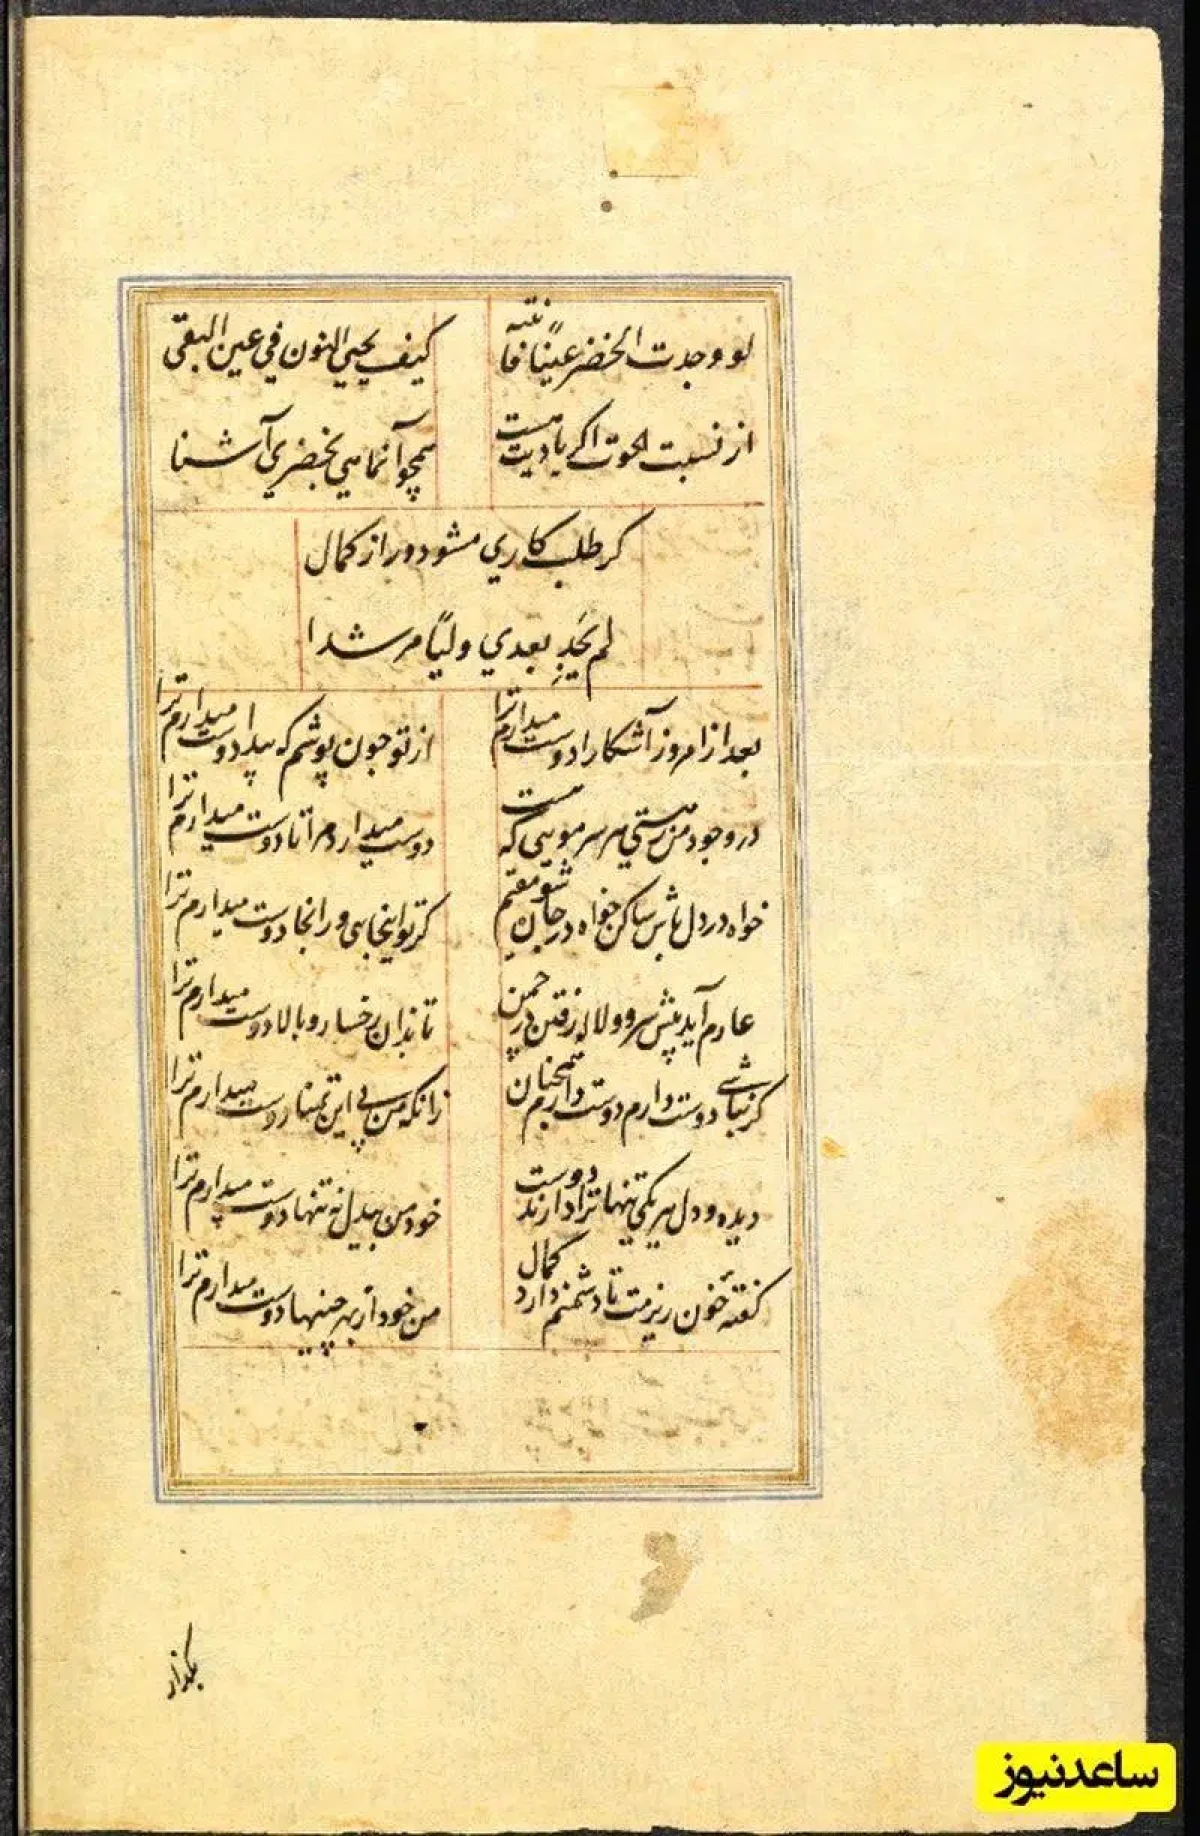 لو وجدت الخضر عینًا فانتبه کیف یحیی النون فی عین البقی
از نسبت الحوت اکر یادیت هست همچو آنماهی بخضری آشنا
کر طلب کاری مشو دور از کمال
لم تجد بعدی ولیًا مرشدا
بعد از امروز آشکارا دوست میدارم ترا از تو چون پوشم که پیدا دوست میدارم ترا
در وجود من ز هستی هر سر مویی که هست دوست میدارد مرا تا دوست میدارم ترا
خواه در دل باش ساکن خواه در جان شو مقیم کر تو اینجایی ور انجا دوست میدارم ترا
عارم آید پیش سرو و لاله رفتن در چمن تا بدان رخسار و بالا دوست میدارم ترا
کر نباشی دوست دارم دوست دارم همچنان زانکه من بی این تمنا دوست میدارم ترا
دیده و دل هر یکی تنها ترا دارند دوست خود من بیدل نه تنها دوست میدارم ترا
کفتهٔ خون ریزمت تا دشمنم دارد کمال من خود از بهر چنینها دوست میدارم ترا
بکذار
ساعدنیوز